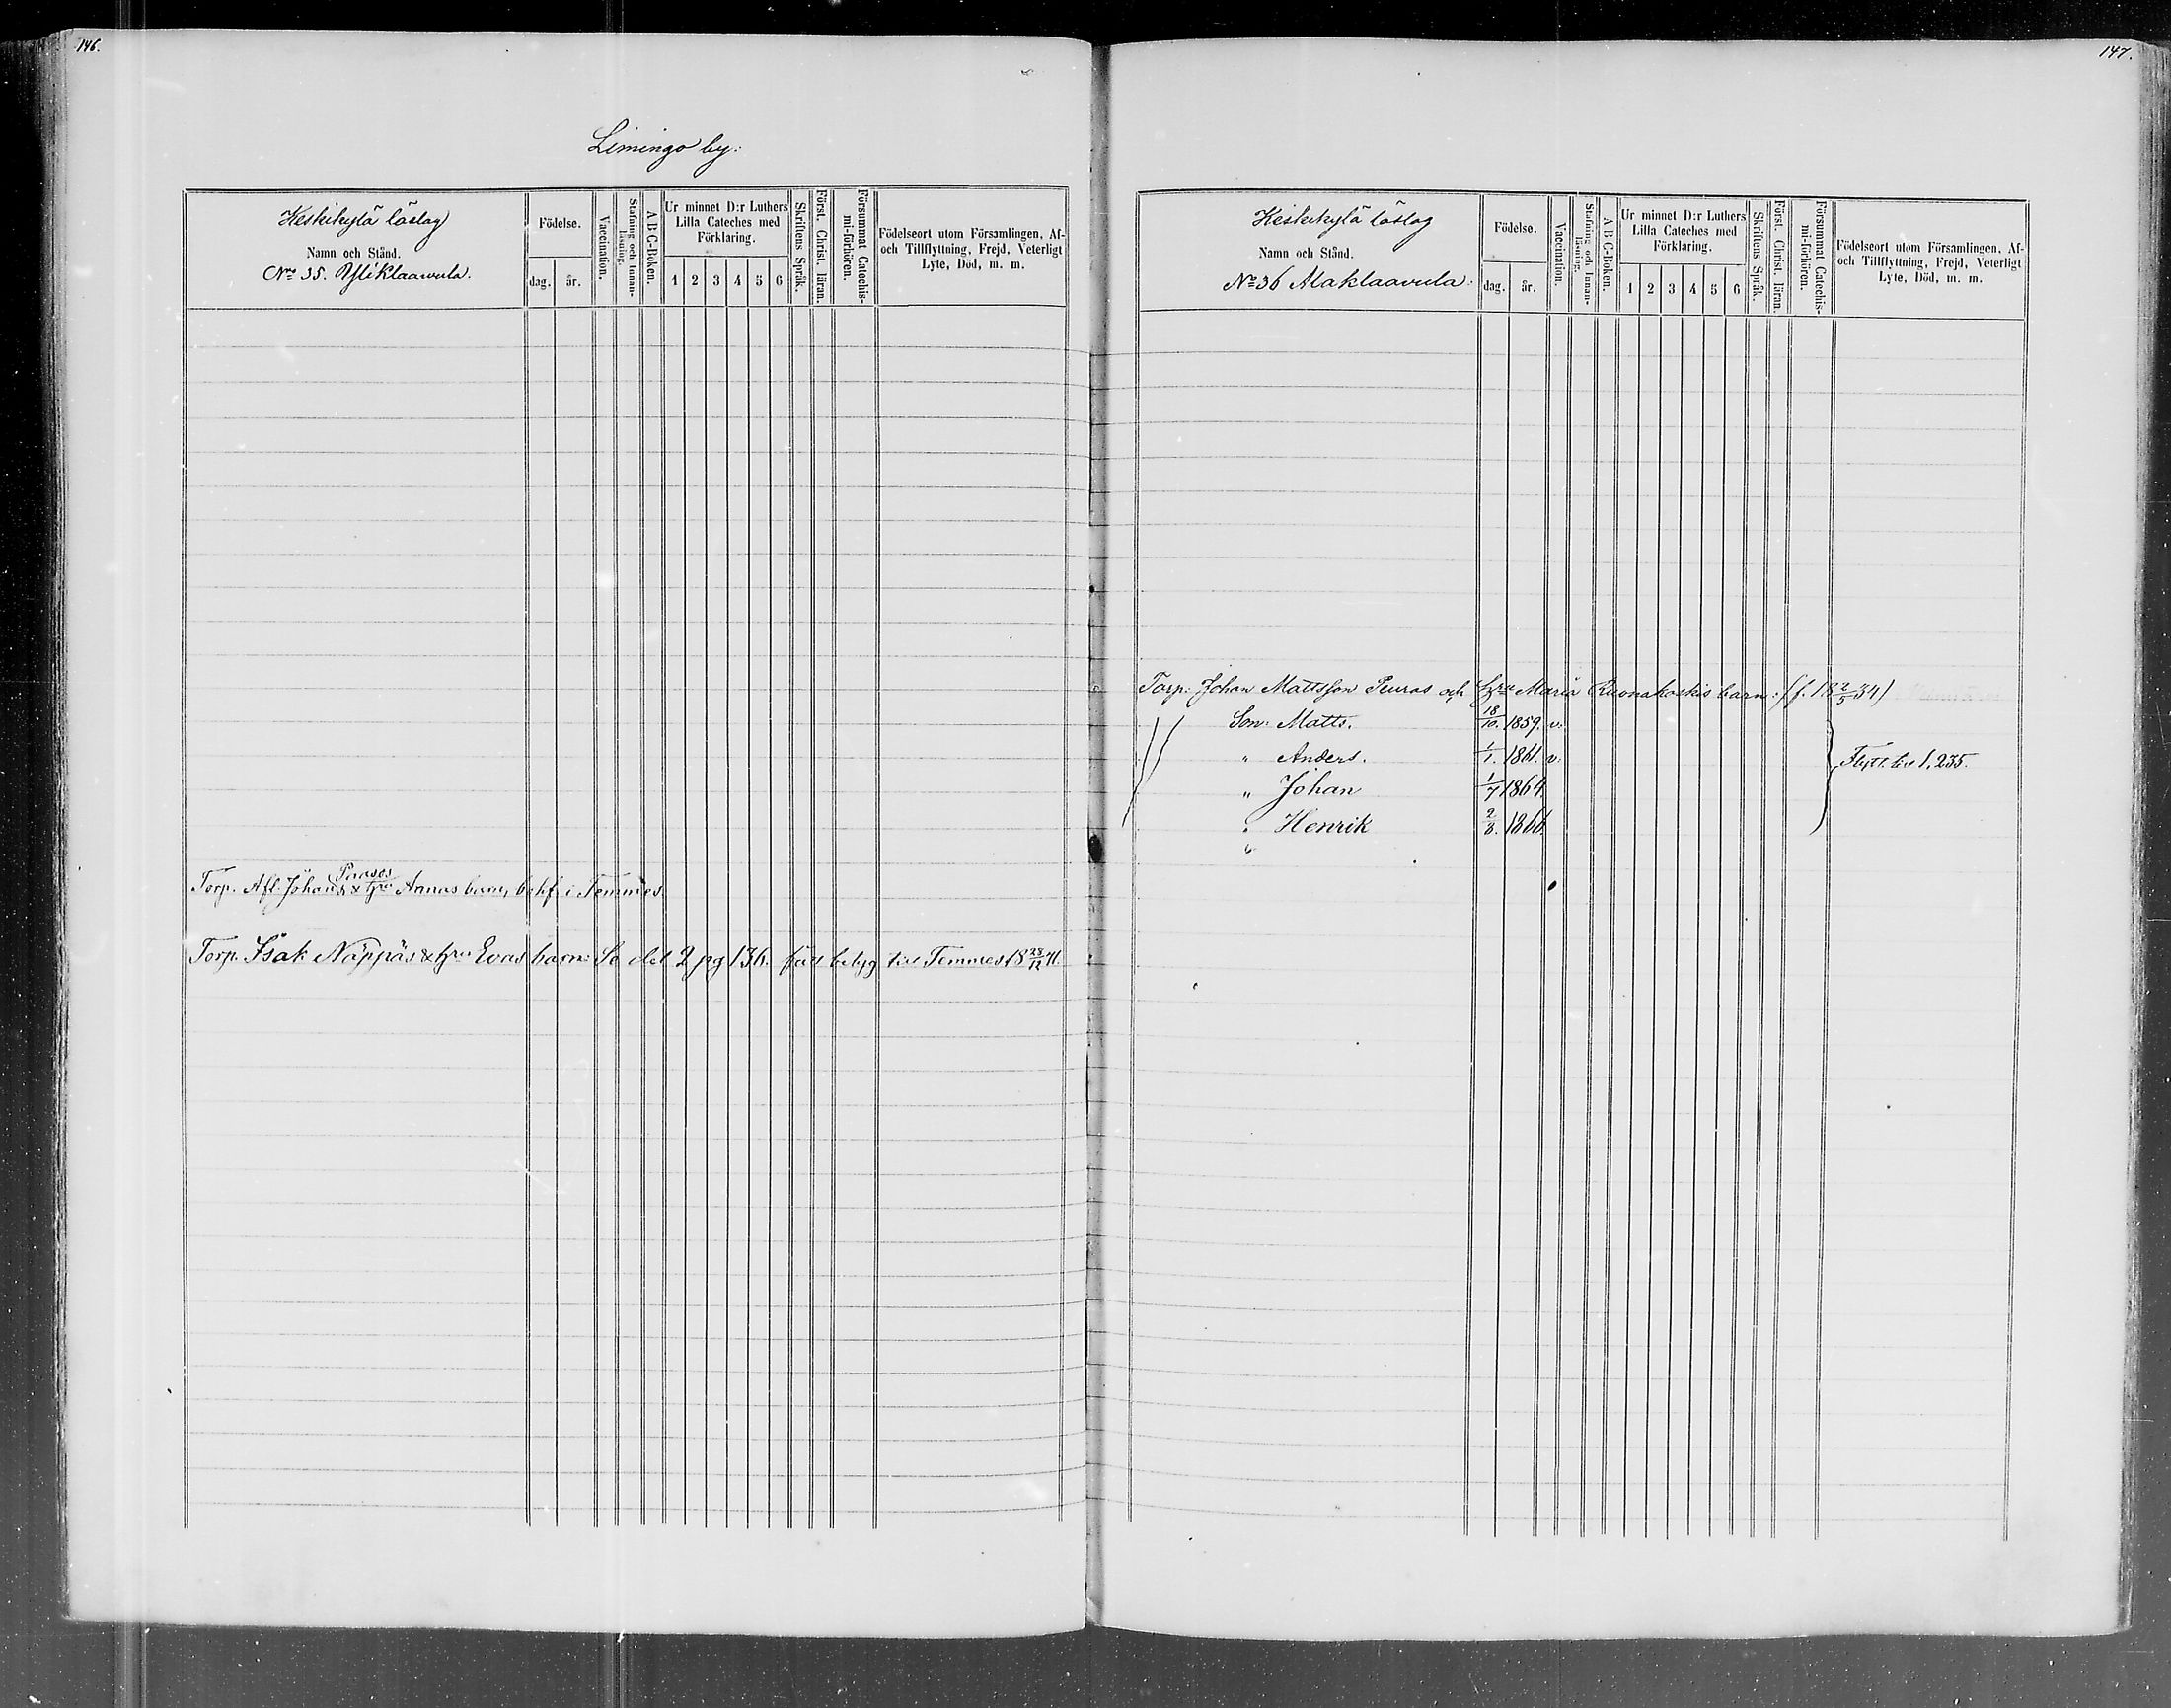 146.
Limingo by:
Keskikylä läslag
Namn och Stånd.
No 35. Ylliklaavula.
Födelse.
dag. år.
Vaccination.
Stafning och Innan-
läsning.
A B C-Boken.
Ur minnet D:r Luthers
Lilla Cateches med
Förklaring.
1 2 3 4 5 6
Skriftens Språk.
Först. Christ. läran.
Försummat Catechis-
mi-förhören.
Födelseort utom Församlingen, Af-
och Tillflyttning, Frejd, Veterligt
Lyte, Död, m. m.
Torp. Afl. Johan & hru Annas barn, i Temmes.
Torp. Isak Näppäs & hru Evas barn: Se del 2 pg 136. fått betyg till Temmes 18 28/12 71.
147.
Keskikylä läslag
Namn och Stånd.
No 36 Alaklaavula.
Födelse.
dag. år.
Vaccination.
Stafning och Innan-
läsning.
A B C-Boken.
Ur minnet D:r Luthers
Lilla Cateches med
Förklaring.
1 2 3 4 5 6
Skriftens Språk.
Först. Christ. läran.
Försummat Catechis-
mi-förhören.
Födelseort utom Församlingen, Af-
och Tillflyttning, Frejd, Veterligt
Lyte, Död, m. m.
Torp: Johan Mattsson Peuras och hru Maria Ruonakoskis barn: (f. 18 2/5 34)
Son: Matts. 18/10. 1859. v.
" Anders. 1/1. 1861. v.
Flytt. till 1, 235.
" Johan 1/7 1864.
" Henrik 2/8. 1866.
"